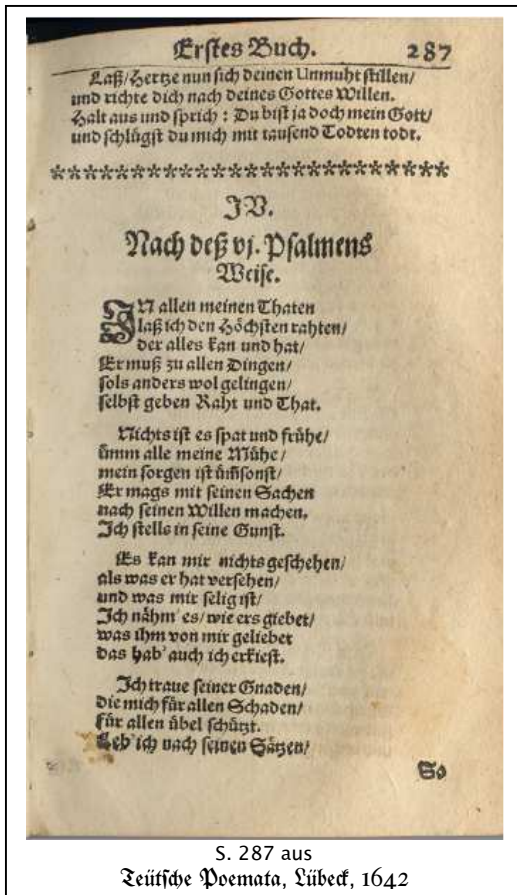 Erstes Buch. 287
Laß/Hertze nun sich deinen Unmuht stillen/
und richte dich nach deines Gottes Willen.
Halt aus und sprich : Du bist ja doch mein Gott/
und schlügst du mich mit tausend Todten todt.
*************************
IV.
Nach deß vj. Psalmens
Weise.
IN allen meinen Thaten
laß ich den Höchsten rahten/
der alles kan und hat/
Er muß zu allen Dingen/
sols anders wol gelingen/
selbst geben Raht und That.
Nichts ist es spat und frühe/
ümm alle meine Mühe/
mein sorgen ist üm̃sonst/
Er mags mit seinen Sachen
nach seinen Willen machen.
Ich stells in seine Gunst.
Es kan mir nichts geschehen/
als was er hat versehen/
und was mir selig ist/
Ich nähm' es/wie ers giebet/
was ihm von mir geliebet
das hab' auch ich erkiest.
Ich traue seiner Gnaden/
die mich für allen Schaden/
für allen übel schützt.
Leb' ich nach seinen Sätzen/
So
S. 287 aus
Teütsche Poemata, Lübeck, 1642